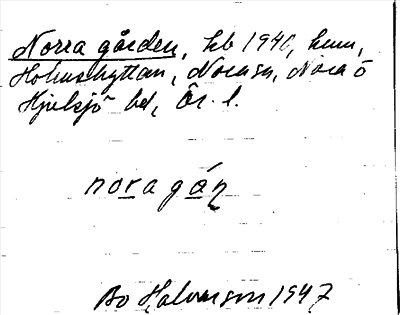 Norra gården, kb 1940, hem,
Holmshyttan, Nora sn, Nora o
Hjulsjö bd, Ör. l.
nora gán
Bo Halvarson 1947